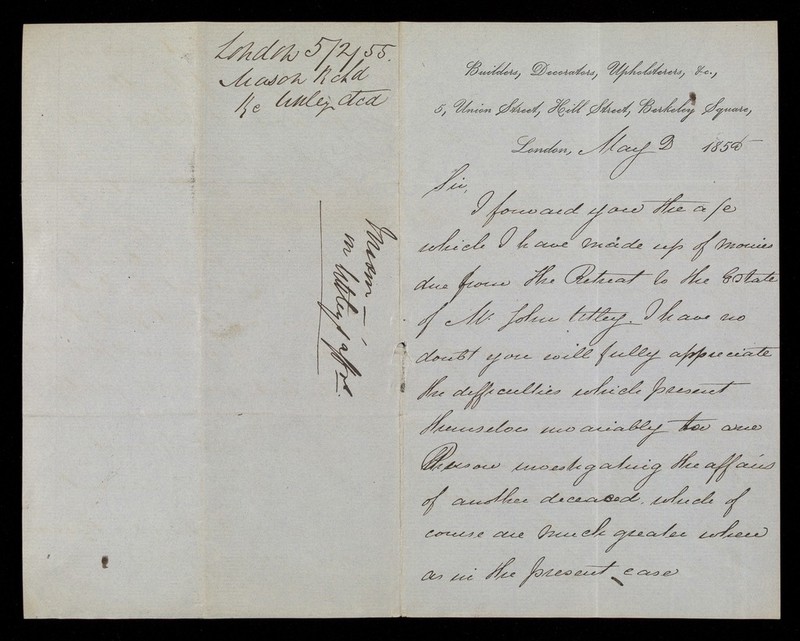 London 5/2/55.
Mason Richd
Re Utley decd
Mason —
in Utley's affrs.
Builders, Decorators, Upholsterers, &c.,
5, Union Street, Hill Street, Berkeley Square,
London, May 2 1855
Sir,
I forward you the a/c
which I have made up of monies
due from the Retreat to the Estate
of Mr. John Utley. I have no
doubt you will fully appreciate
the difficulties which present
themselves invariably to one
Person investigating the affairs
of another deceased. which of
course are much greater where
as in the present case